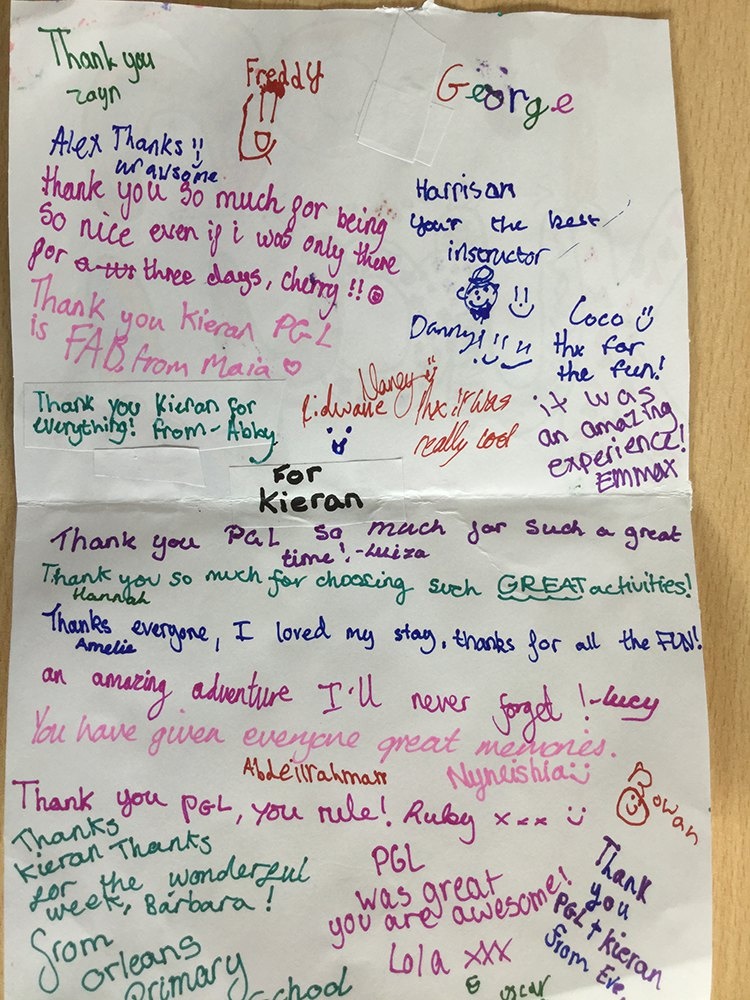 Thank you
Zayn
Freddy
George
Alex Thanks !!
ur awsome
thank you so much for being
so nice even if i was only there
for three days, cherry !!
Harrison
your the best
instructor
Danny !!!
Thank you Kieran PGL
is FAB. from Maia
Coco
thx for
the fun!
Thank you Kieran for
everything! from - Abby
Ridwane
Nancy
thx it was
really cool
it was
an amazing
experience!
Emmax
For
Kieran
Thank you PGL so much for such a great
time! - Luiza
Thank you so much for choosing such GREAT activities!
Hannah
Thanks everyone, I loved my stay, thanks for all the FUN!
Amelie
an amazing adventure I'll never forget ! - Lucy
You have given everyone great memories.
Abdeilrahman
Nyneishia
Rowan
Thank you PGL, you rule! Ruby xxx
Thanks
Kieran Thanks
for the wonderful
week, Barbara !
PGL
was great
you are awesome!
Lola xxx
Thank
you
PGL + Kieran
from Eve
from
Orleans
Primary
School
oscar